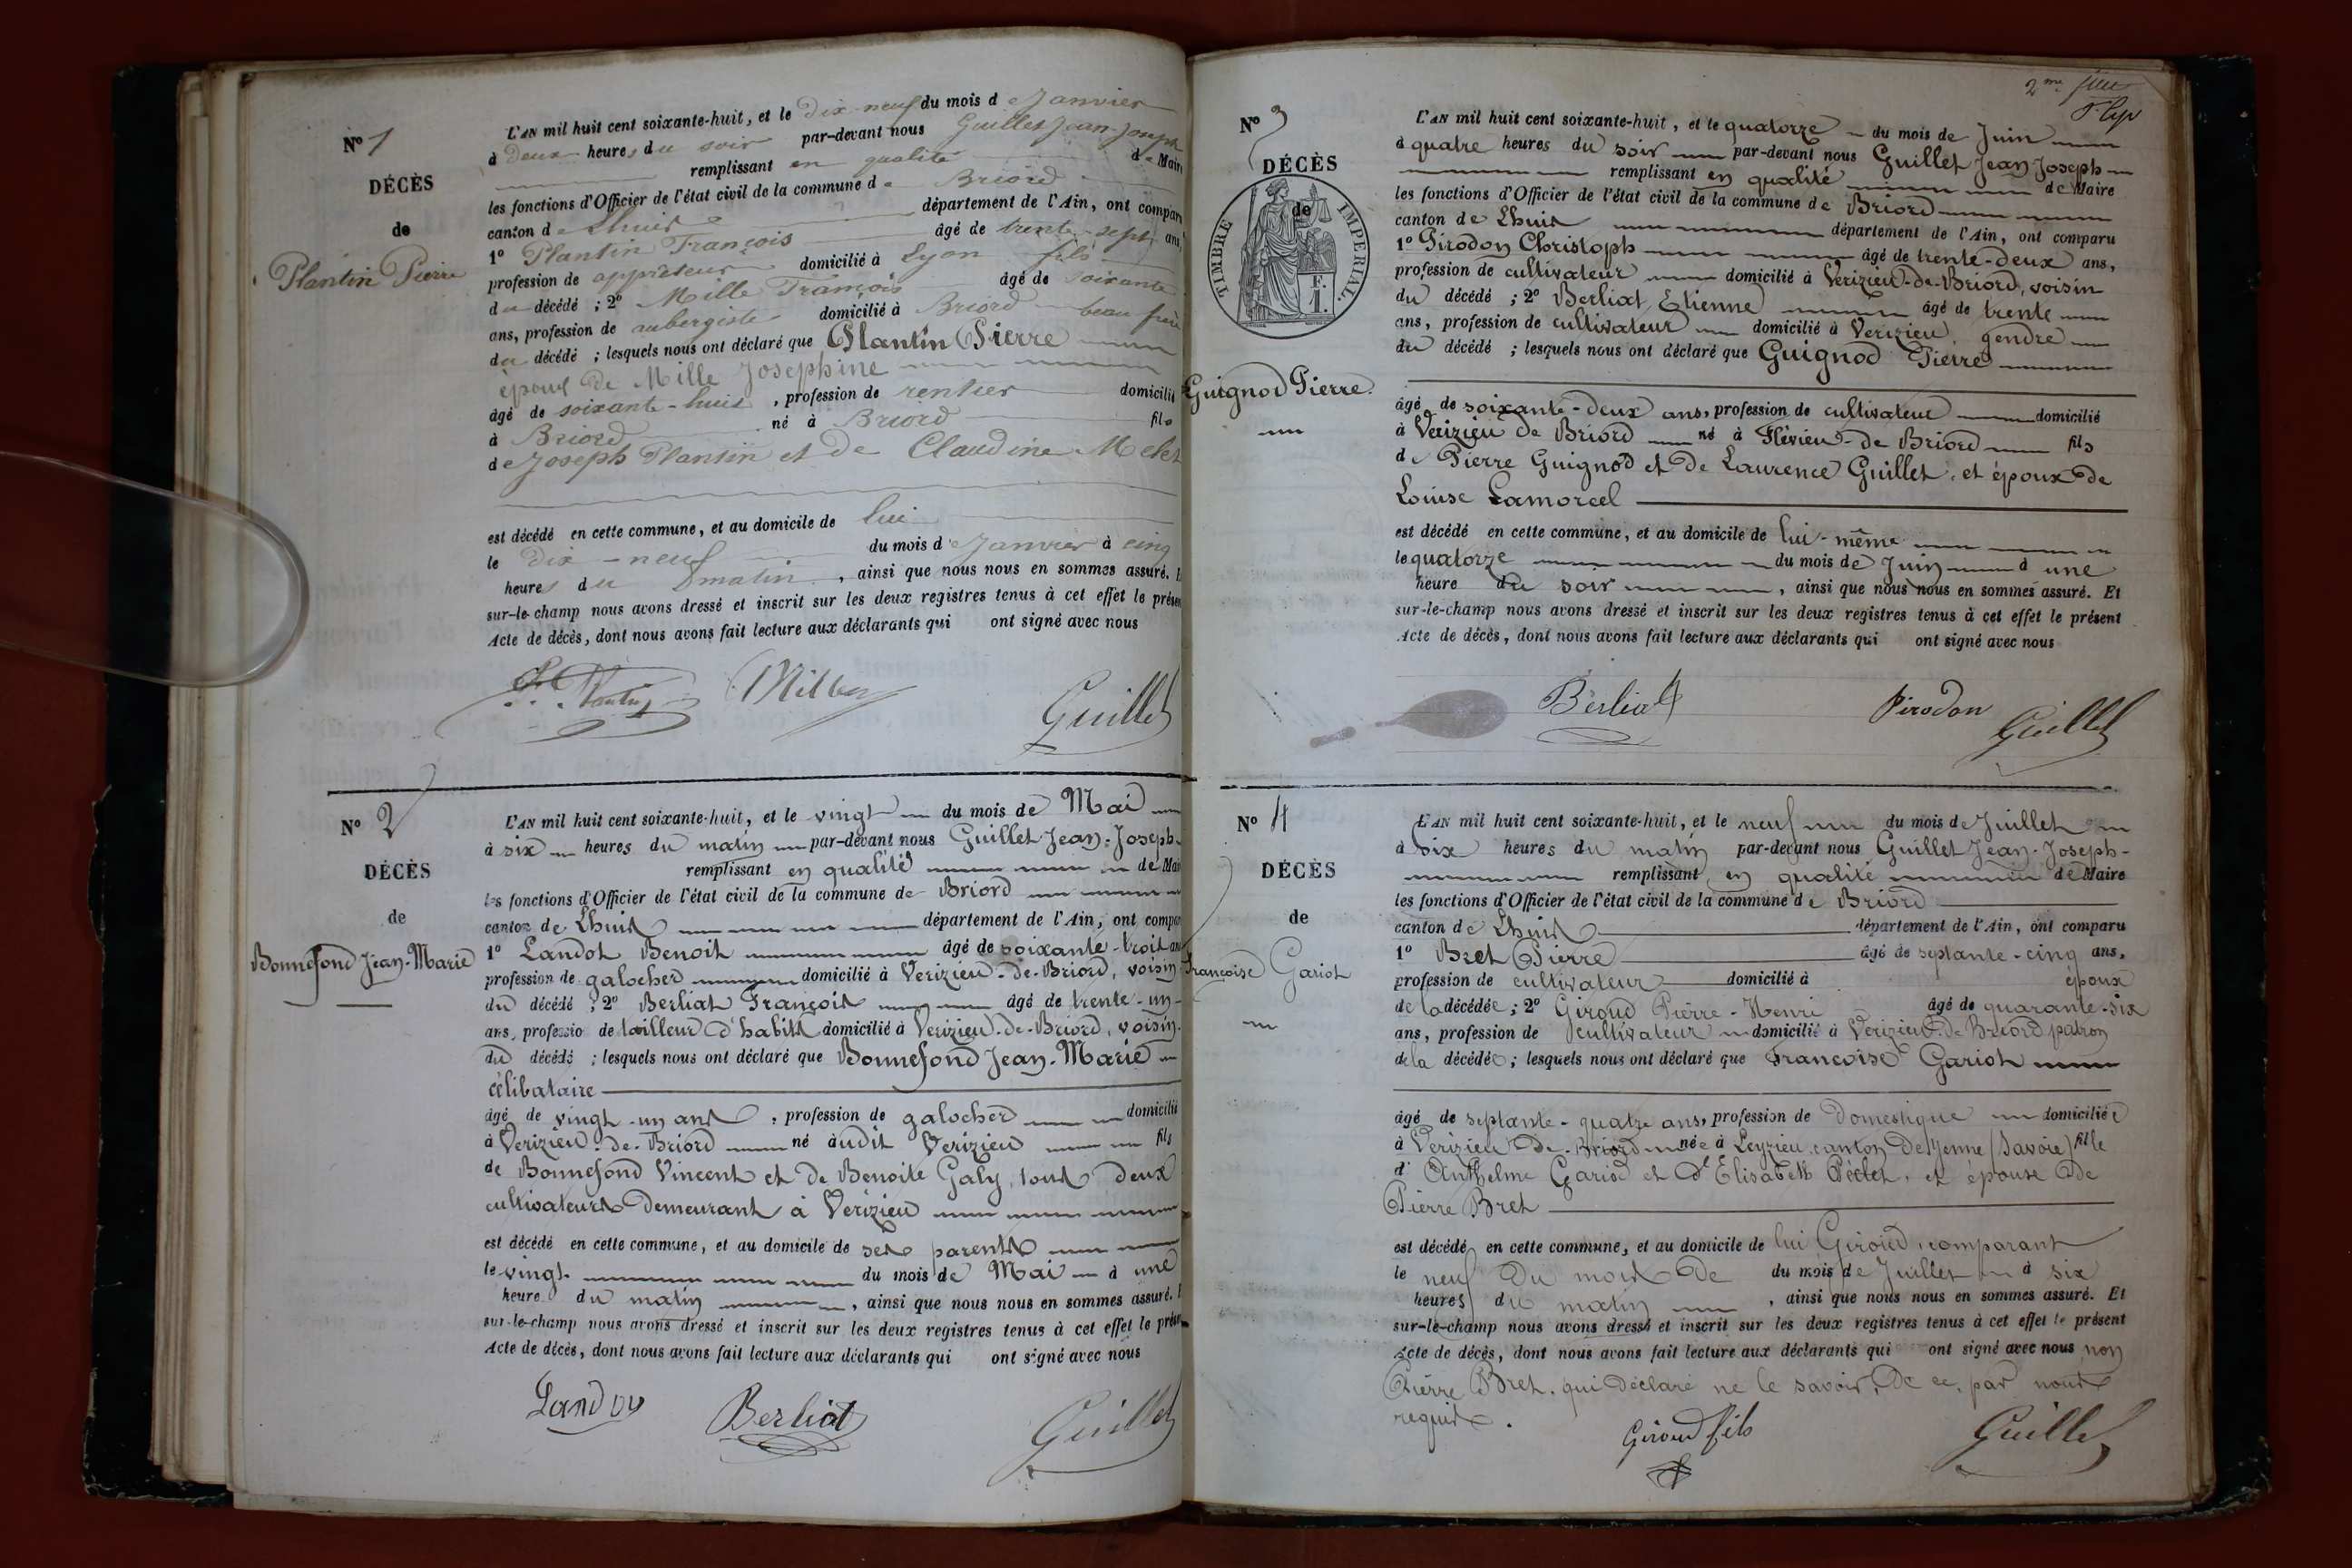 N° 1
DÉCÈS
de
Plantin Pierre
L'AN mil huit cent soixante-huit, et le dix-neuf du mois de Janvier
à deux heures du soir par-devant nous Guillet Jean-Joseph
remplissant en qualité de Maire
les fonctions d'Officier de l'état civil de la commune de Briord
canton de Lhuis département de l'Ain, ont comparu
1° Plantin François âgé de trente-sept ans,
profession de appreteur domicilié à Lyon fils
du décédé ; 2° Mille François âgé de soixante
ans, profession de aubergiste domicilié à Briord beau frère
du décédé ; lesquels nous ont déclaré que Plantin Pierre
époux de Mille Josephine
âgé de soixante-huit, profession de rentier domicilié
à Briord né à Briord fils
de Joseph Plantin et de Claudine Melet
est décédé en cette commune, et au domicile de lui
le dix-neuf du mois de Janvier à cinq
heures du matin, ainsi que nous nous en sommes assuré. E
sur-le-champ nous avons dressé et inscrit sur les deux registres tenus à cet effet le présen
Acte de décès, dont nous avons fait lecture aux déclarants qui ont signé avec nous
Plantin Mille Guillet
N° 2
DÉCÈS
de
Bonnefond Jean-Marie
L'AN mil huit cent soixante-huit, et le vingt du mois de Mai
à six heures du matin par-devant nous Guillet Jean-Joseph
remplissant en qualité de Mai
les fonctions d'Officier de l'état civil de la commune de Briord
canton de Lhuis département de l'Ain, ont compar
1° Landot Benoit âgé de soixante-trois ans
profession de galocher domicilié à Verizieu-de-Briord, voisin
du décédé ; 2° Berliat François âgé de trente-un
ans, professio de tailleur d'habits domicilié à Verizieu-de-Briord, voisin
du décédé ; lesquels nous ont déclaré que Bonnefond Jean-Marie
célibataire
âgé de vingt-un ans, profession de galocher domicilié
à Verizieu-de-Briord né àudit Verizieu fils
de Bonnefond Vincent et de Benoite Galy, tous deux
cultivateurs demeurant à Verizieu
est décédé en cette commune, et au domicile de ses parents
le vingt du mois de Mai à une
heure du matin, ainsi que nous nous en sommes assuré. E
sur-le-champ nous avons dressé et inscrit sur les deux registres tenus à cet effet le présen
Acte de décès, dont nous avons fait lecture aux déclarants qui ont signé avec nous
Landoy Berliat Guillet
2me
N° 3
DÉCÈS
de
TIMBRE IMPÉRIAL
F.
1.
Guignod Pierre
L'AN mil huit cent soixante-huit, et le quatorze du mois de Juin
à quatre heures du soir par-devant nous Guillet Jean-Joseph
remplissant en qualité de Maire
les fonctions d'Officier de l'état civil de la commune de Briord
canton de Lhuis département de l'Ain, ont comparu
1° Pirodon Christoph âgé de trente-deux ans,
profession de cultivateur domicilié à Verizieu-de-Briord, voisin
du décédé ; 2° Berliat Etienne âgé de trente
ans, profession de cultivateur domicilié à Verizieu, gendre
du décédé ; lesquels nous ont déclaré que Guignod Pierre
âgé de soixante-deux ans, profession de cultivateur domicilié
à Verizieu de Briord né à Flévieu-de Briord fils
de Pierre Guignod et de Laurence Guillet, et époux de
Louise Lamorcel
est décédé en cette commune, et au domicile de lui-même
le quatorze du mois de Juin à une
heure du soir, ainsi que nous nous en sommes assuré. Et
sur-le-champ nous avons dressé et inscrit sur les deux registres tenus à cet effet le présent
Acte de décès, dont nous avons fait lecture aux déclarants qui ont signé avec nous
Berliat Pirodon Guillet
N° 4
DÉCÈS
de
Francoise Gariot
L'AN mil huit cent soixante-huit, et le neuf du mois de Juillet
à six heures du matin par-devant nous Guillet Jean-Joseph-
remplissant en qualité de Maire
les fonctions d'Officier de l'état civil de la commune de Briord
canton de Lhuis département de l'Ain, ont comparu
1° Bret Pierre âgé de septante-cinq ans,
profession de cultivateur domicilié à époux
de la décédée ; 2° Giroud Pierre-Henri âgé de quarante-six
ans, profession de cultivateur domicilié à Verizieu-de Briord patron
de la décédée ; lesquels nous ont déclaré que Francoise Gariot
âgé de septante-quatre ans, profession de Domestique domiciliée
à Verizieu de-Briord née à Leyzieu canton de Yenne (Savoie) fille
d'Anthelme Gariod et d'Elisabeth Péclet, et épouse de
Pierre Bret
est décédé en cette commune, et au domicile de lui Giroud, comparant
le neuf du mois de du mois de Juillet à six
heures du matin, ainsi que nous nous en sommes assuré. Et
sur-le-champ nous avons dressé et inscrit sur les deux registres tenus à cet effet le présent
Acte de décès, dont nous avons fait lecture aux déclarants qui ont signé avec nous non
Pierre Bret, qui déclare ne le savoir, de ce, par nous
requis.
Giroud fils Guillet